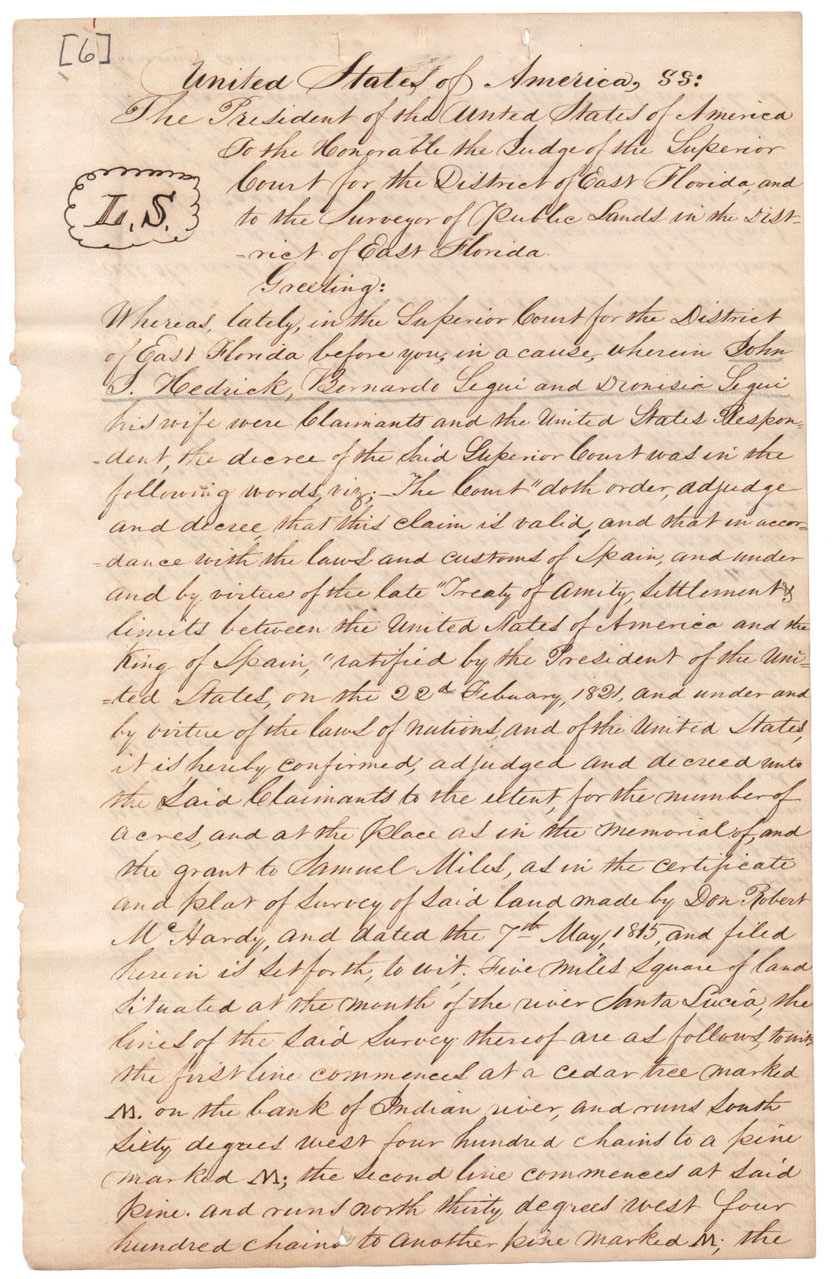 [6]
United States of America, SS:
The President of the United States of America
To the Honorable the Judge of the Superior
Court for the District of East Florida, and
L.S.
to the Surveyor of Public Lands in the Dist-
-rict of East Florida.
Greeting:
Whereas, lately, in the Superior Court for the District
of East Florida before you, in a cause, wherein John
S. Hedrick, Bernardo Segui and Dionisia Segui
his wife were Claimants and the United States Respon-
-dent, the decree of the Said Superior Court was in the
following words, viz; - The Court "doth order, adjudge
and decree that this claim is valid, and that in accor-
-dance with the laws and customs of Spain, and under
and by virtue of the late "Treaty of Amity, Settlement &
limits between the United States of America and the
King of Spain, "ratified by the President of the Uni-
-ted States, on the 22d Febuary, 1821, and under and
by virtue of the laws of nations, and of the United States,
it is hereby confirmed, adjudged and decreed unto
the Said Claimants to the extent, for the number of
acres, and at the place as in the memorial of, and
the grant to Samuel Miles, as in the certificate
and plat of survey of said land made by Don Robert
McHardy, and dated the 7th May, 1815, and filed
herein is set forth, to wit. Five miles square of land
situated at the mouth of the river Santa Lucia, the
lines of the said survey thereof are as follows, to wit,
the first line commences at a cedar tree marked
M. on the bank of Indian river, and runs south
sixty degrees west four hundred chains to a pine
marked M; the second line commences at said
pine. and runs north thirty degrees west four
hundred chains to another pine marked M; the